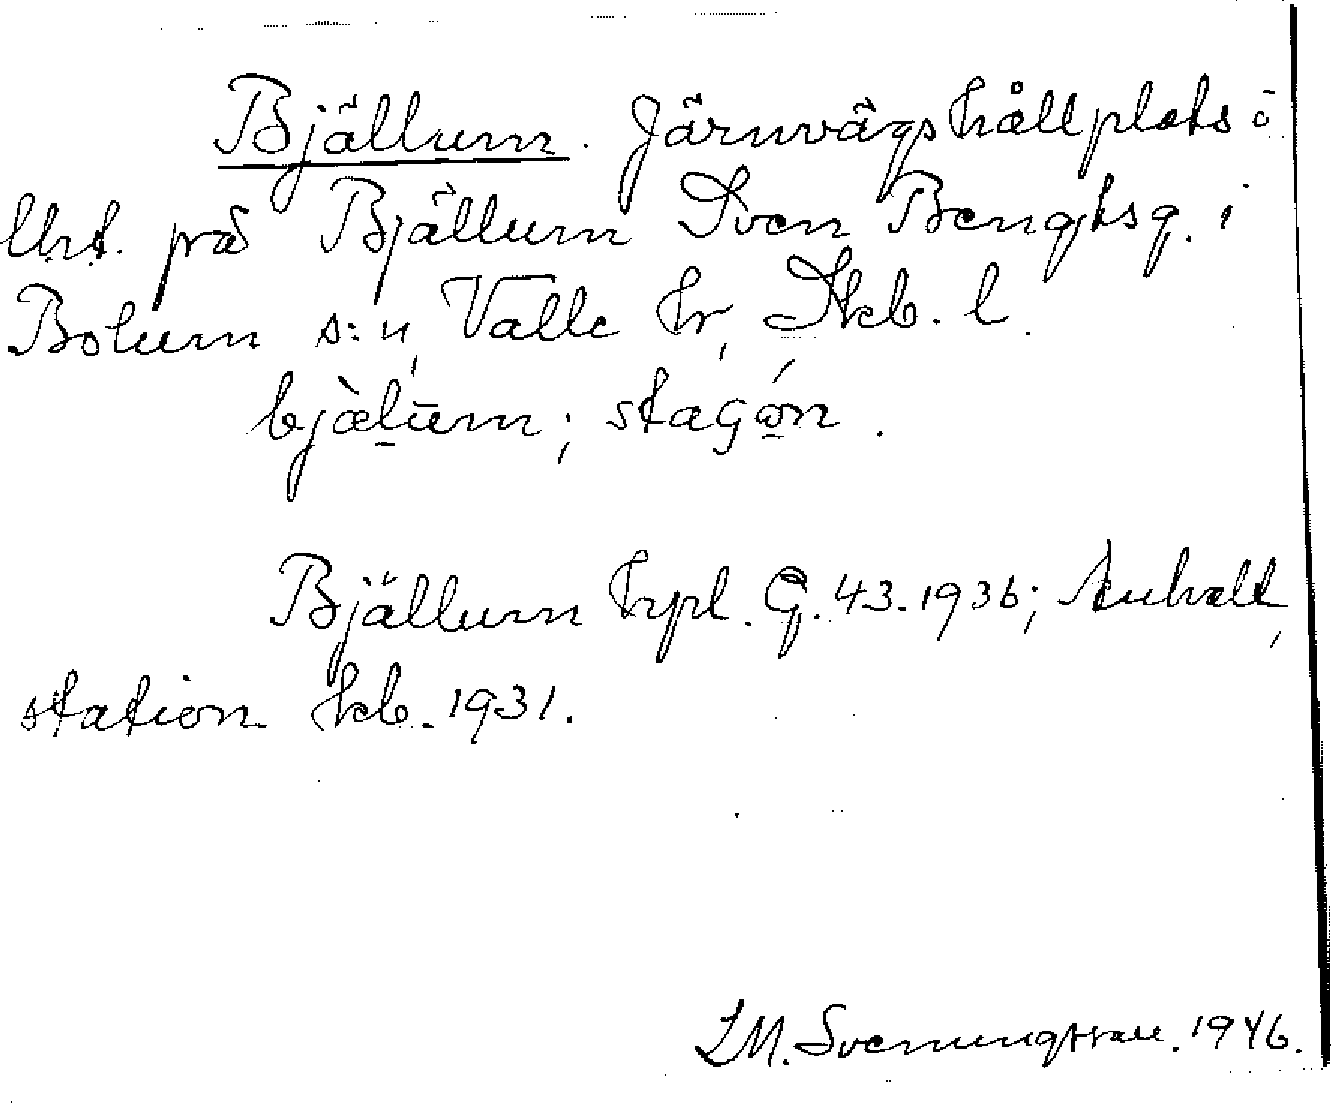 Bjällum. Järnvägshållplats ö
Urt. på Bjällum Sven Bengtsg. i
Bolum s:n, Valle hr, Skb. l.
bjæ̀lūm; stagǿn.
Bjällum hpl. G. 43. 1936; Anhalt,
station hkb. 1931.
L.M. Svenungsson. 1946.